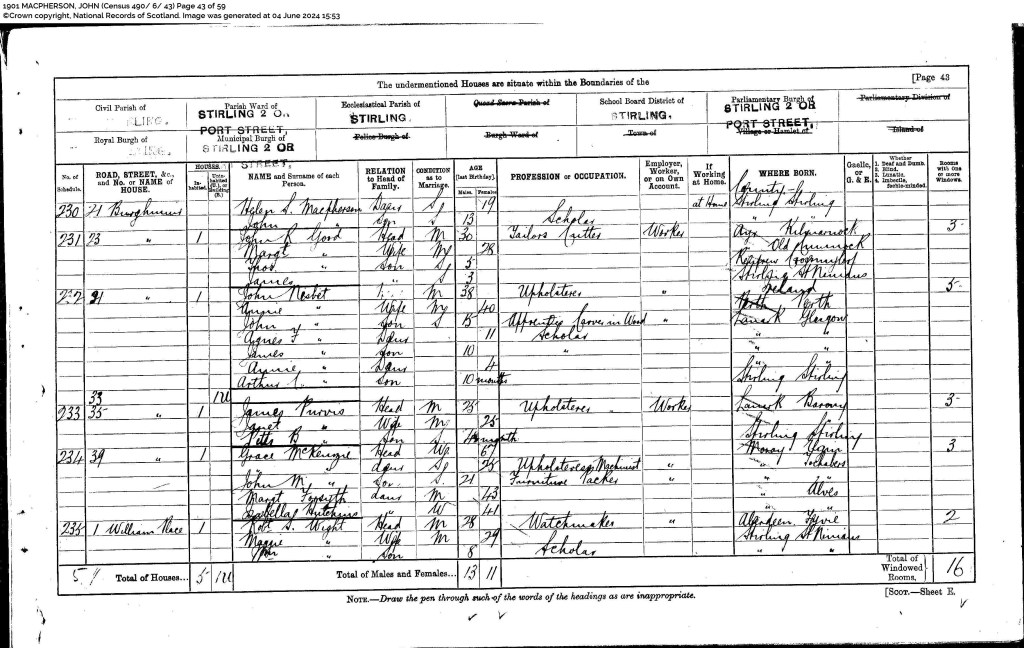 1901 MACPHERSON, JOHN (Census 490/ 6/ 43) Page 43 of 59
©Crown copyright, National Records of Scotland. Image was generated at 04 June 2024 15:53
The undermentioned Houses are situate within the Boundaries of the [Page 43
Civil Parish of Parish Ward of Ecclesiastical Parish of Quoad Sacra Parish of School Board District of Parliamentary Burgh of Parliamentary Division of
LING. STIRLING 2 O., STIRLING. STIRLING. STIRLING 2 OR
PORT STREET, PORT STREET,
Royal Burgh of Municipal Burgh of Police Burgh of Burgh Ward of Town of Village or Hamlet of Island of
LING. STIRLING 2 OR
STREET,
No. of Schedule. ROAD, STREET, &c., and No. or NAME of HOUSE. HOUSES. Inhabited. Uninhabited (U.), or Building (B.) NAME and Surname of each Person. RELATION to Head of Family. CONDITION as to Marriage. AGE (last Birthday). Males. Females. PROFESSION or OCCUPATION. Employer, Worker, or on Own Account. If Working at Home. WHERE BORN. Gaelic, or G. & E. Whether 1. Deaf and Dumb. 2. Blind. 3. Lunatic. 4. Imbecile, feeble-minded. Rooms with one or more Windows.
County
230 21 Helen S. Macpherson Daur S 19 at Home Stirling Stirling
John " Son S 13 Scholar " "
231 23 " 1 John R Head M 30 Tailors Cutter Worker Ayr Kilmarnock 3
Margt " Wife M 28 " Old Cumnock
Thos. " Son S 5 Renfrew
James " " S 3 Stirling St Ninians
232 " 1 John Nesbet M 38 Upholsterer " Ireland 5
Annie " Wife M 40 Perth Perth
John " Son S 15 Apprentice Carver in Wood " Lanark Glasgow
Agnes " Daur 11 Scholar " "
James " Son 10 " " "
Annie " Daur 4 " "
Arthur " Son 10 months Stirling Stirling
33 1U
233 35 " 1 James Purvis Head M 25 Upholsterer Worker Lanark Barony 3
Janet " Wife M 25
B " Son S month Stirling Stirling
234 39 " 1 Grace McKenzie Head W 67 Moray 3
" daur S 25 Upholsteress Machinist "
John M. " Son S 21 Furniture Packer "
Margt Forsyth daur M 43 " Alves
Isabella Hutchins " W 41
235 1 William Place 1 Robt S. Wight Head M 28 Watchmaker " Aberdeen Fyvie 2
Maggie " Wife M 29 Stirling St Ninians
Wm " Son 8 Scholar " "
5 Total of Houses... 5 1U Total of Males and Females... 13 11 Total of Windowed Rooms, 16
NOTE.—Draw the pen through such of the words of the headings as are inappropriate. [SCOT.—Sheet E.